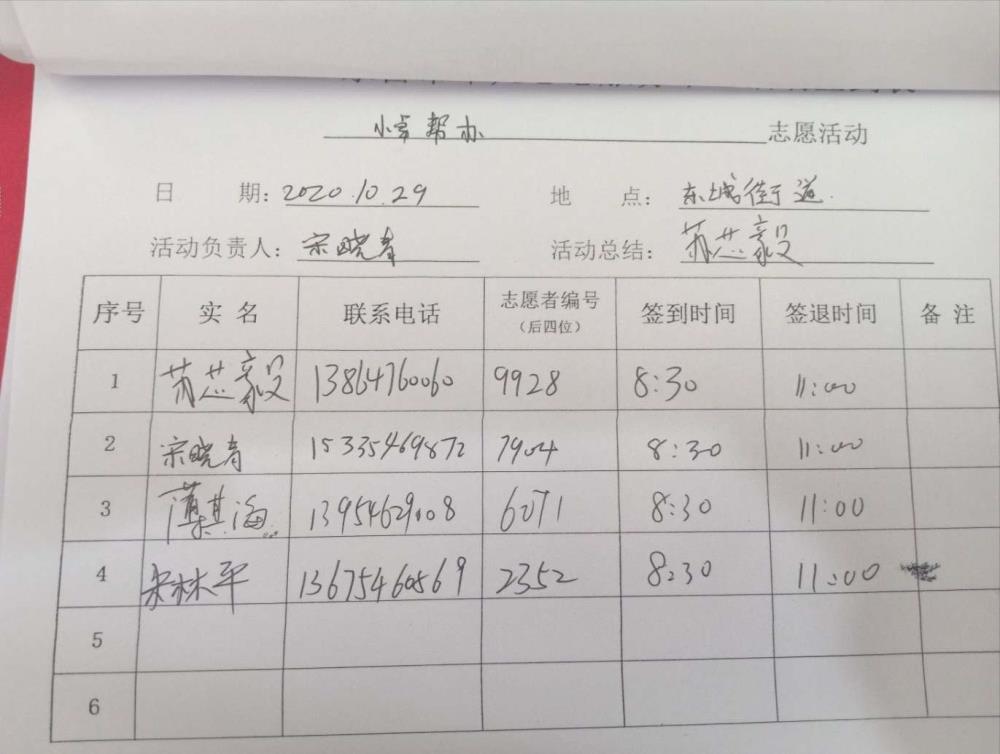 小 帮办 志愿活动
日 期: 2020.10.29 地 点: 东城街道
活动负责人: 宋晓青 活动总结: 苏芯毅
序号 实名 联系电话 志愿者编号(后四位) 签到时间 签退时间 备注
1 苏芯毅 13864760060 9928 8:30 11:00
2 宋晓青 15335469872 7904 8:30 11:00
3 薄其海 13954629108 6071 8:30 11:00
4 林平 13675460569 2352 8:30 11:00
5
6